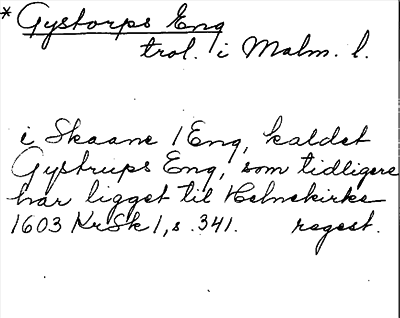 * Gystorps Eng
trol. i Malm. l.
i Skaane 1 Eng, kaldet
Gystrups Eng, som tidligere
har ligget til Helnekirke
1603 KrSk 1, s. 341. regest.